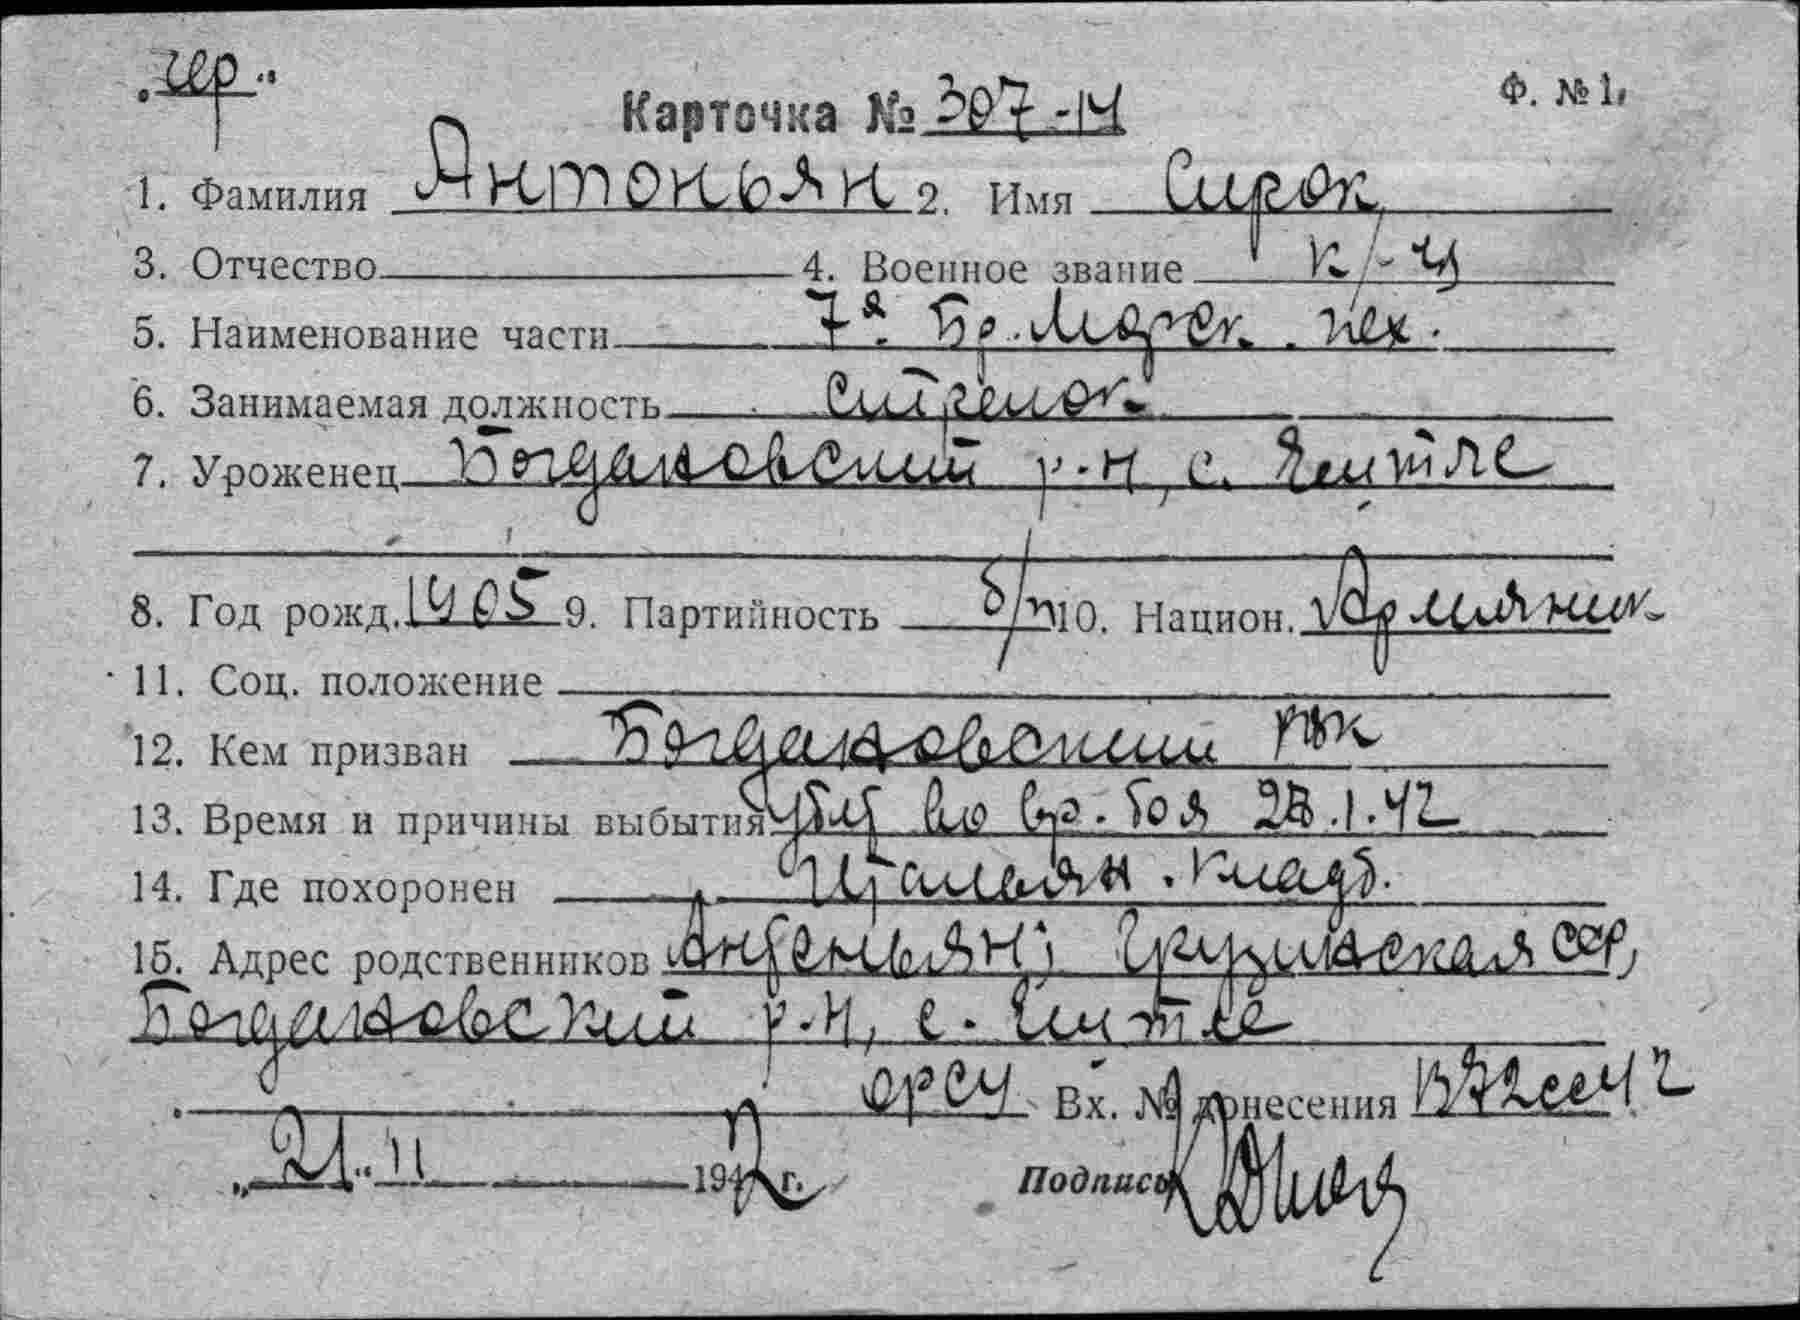 „чер“
Ф. №1.
Карточка № 307-14
1. Фамилия Антоньян 2. Имя Сирок
3. Отчество 4. Военное звание к/-ц
5. Наименование части 7я Бр. Морск. пех.
6. Занимаемая должность стрелок
7. Уроженец Богдановский р-н, с. Ештле
8. Год рожд. 1905 9. Партийность б/п 10. Национ. Армяник
11. Соц. положение
12. Кем призван Богдановский РВК
13. Время и причины выбытия убит во вр. боя 28.1.42
14. Где похоронен Итальян. кладб.
15. Адрес родственников Антеньян; Грузинская ССР,
Богдановский р-н, с. Ештле
Вх. № донесения 1372сс42
„21“ II 1942 г. Подпись